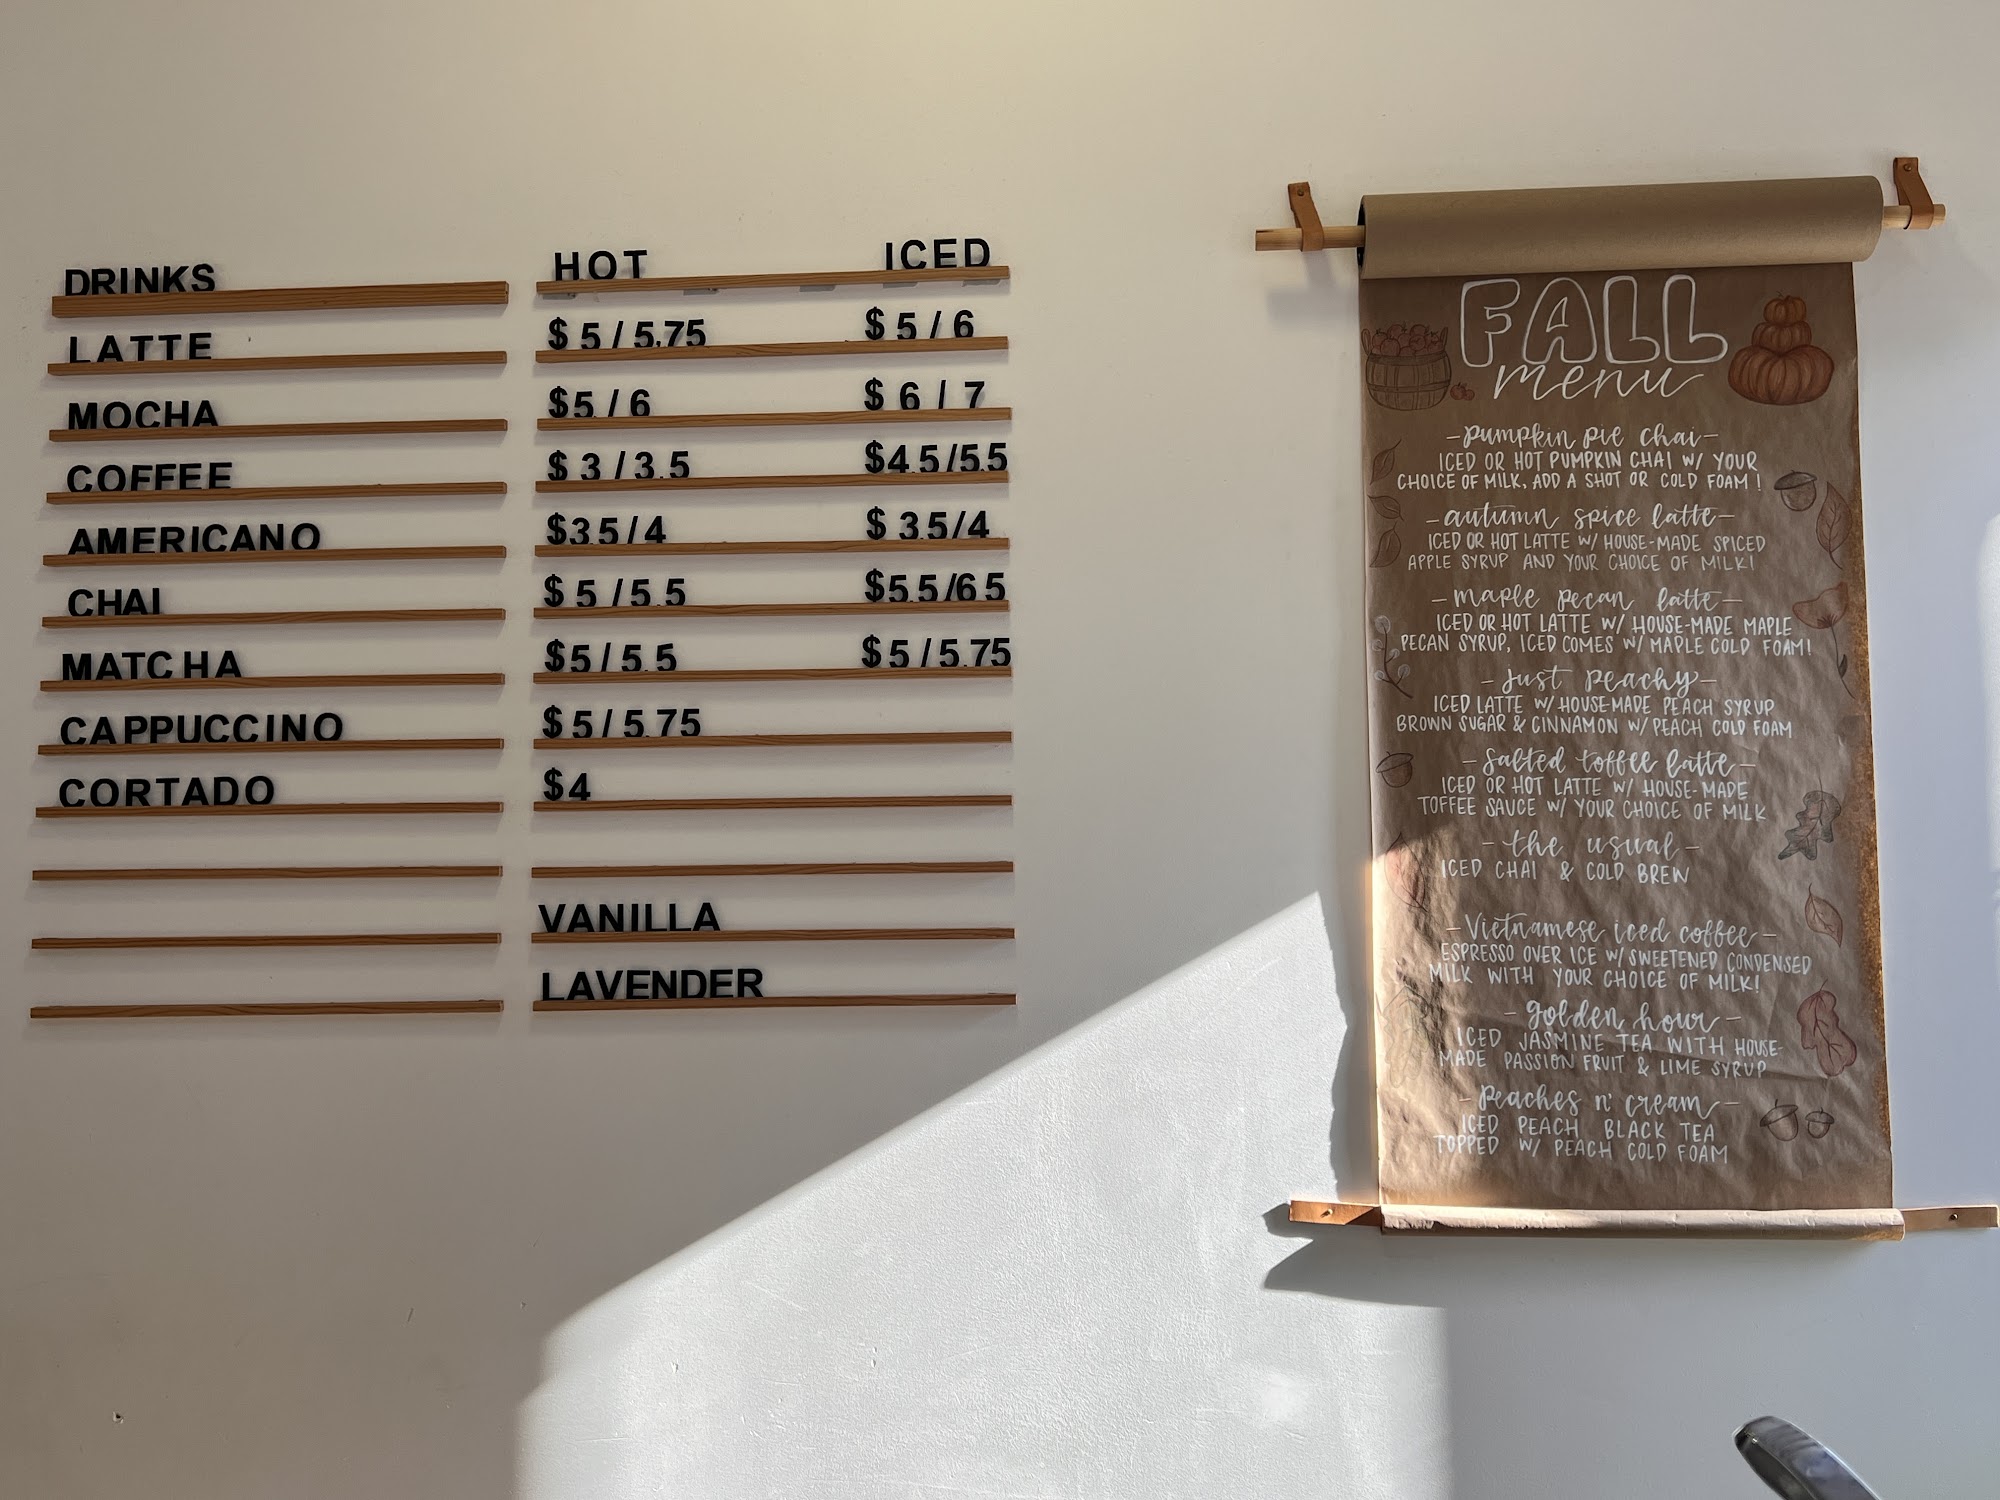 DRINKS HOT ICED
LATTE $5/5.75 $5/6
MOCHA $5/6 $6/7
COFFEE $3/3.5 $4.5/5.5
AMERICANO $3.5/4 $3.5/4
CHAI $5/5.5 $5.5/6.5
MATCHA $5/5.5 $5/5.75
CAPPUCCINO $5/5.75
CORTADO $4
VANILLA
LAVENDER
FALL
menu
-pumpkin pie chai-
ICED OR HOT PUMPKIN CHAI W/ YOUR
CHOICE OF MILK, ADD A SHOT OR COLD FOAM!
-autumn spice latte-
ICED OR HOT LATTE W/ HOUSE-MADE SPICED
APPLE SYRUP AND YOUR CHOICE OF MILK!
-maple pecan latte-
ICED OR HOT LATTE W/ HOUSE-MADE MAPLE
PECAN SYRUP, ICED COMES W/ MAPLE COLD FOAM!
-just peachy-
ICED LATTE W/ HOUSE-MADE PEACH SYRUP
BROWN SUGAR & CINNAMON W/ PEACH COLD FOAM
-salted toffee latte-
ICED OR HOT LATTE W/ HOUSE-MADE
TOFFEE SAUCE W/ YOUR CHOICE OF MILK
-the usual-
ICED CHAI & COLD BREW
-Vietnamese iced coffee-
ESPRESSO OVER ICE W/ SWEETENED CONDENSED
MILK WITH YOUR CHOICE OF MILK!
-golden hour-
ICED JASMINE TEA WITH HOUSE-
MADE PASSION FRUIT & LIME SYRUP
-peaches n' cream-
ICED PEACH BLACK TEA
TOPPED W/ PEACH COLD FOAM